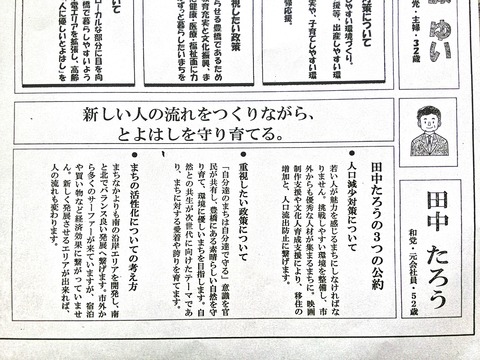 ゆい
党・主婦・32歳
対策について
しやすい環境づくり、
援等、出産しやすい環
実や、子育てしやすい環
婦応援。
視したい政策
らせる豊橋であるため
教育充実と文化振興、ま
に健康・医療・福祉面に力
ずっと暮らしたいまちを
ついて
ローカルな部分に目を向
電エリアを拡張し、高齢
橋で暮らしやすいよう
人に優しいとよはし」を
新しい人の流れをつくりながら、
とよはしを守り育てる。
田中 たろう
和党・元会社員・52歳
田中たろうの3つの公約
●人口減少対策について
若い人が魅力を感じるまちにしなければな
りません。挑戦しやすい環境を整備し、市
外からも優秀な人材が集まるまちに。映画
制作支援や文化人育成支援により、移住の
増加と、人口流出防止に繋げます。
●重視したい政策について
「自分達のまちは自分達で守る」意識を官
民が共有し、豊橋にある素晴らしい自然を守
り育て、環境に優しいまちを目指します。自
然との共生が次世代に向けたテーマであ
り、まちに対する愛着や誇りを育てます。
●まちの活性化についての考え方
まちなかよりも南の沿岸エリアを開発し、南
と北でバランス良い発展へ繋げます。市外か
ら多くのサーファーが来ていますが、宿泊
や買い物など経済効果に繋がっていませ
ん。新しく発展させるエリアが出来れば、
人の流れも変わります。